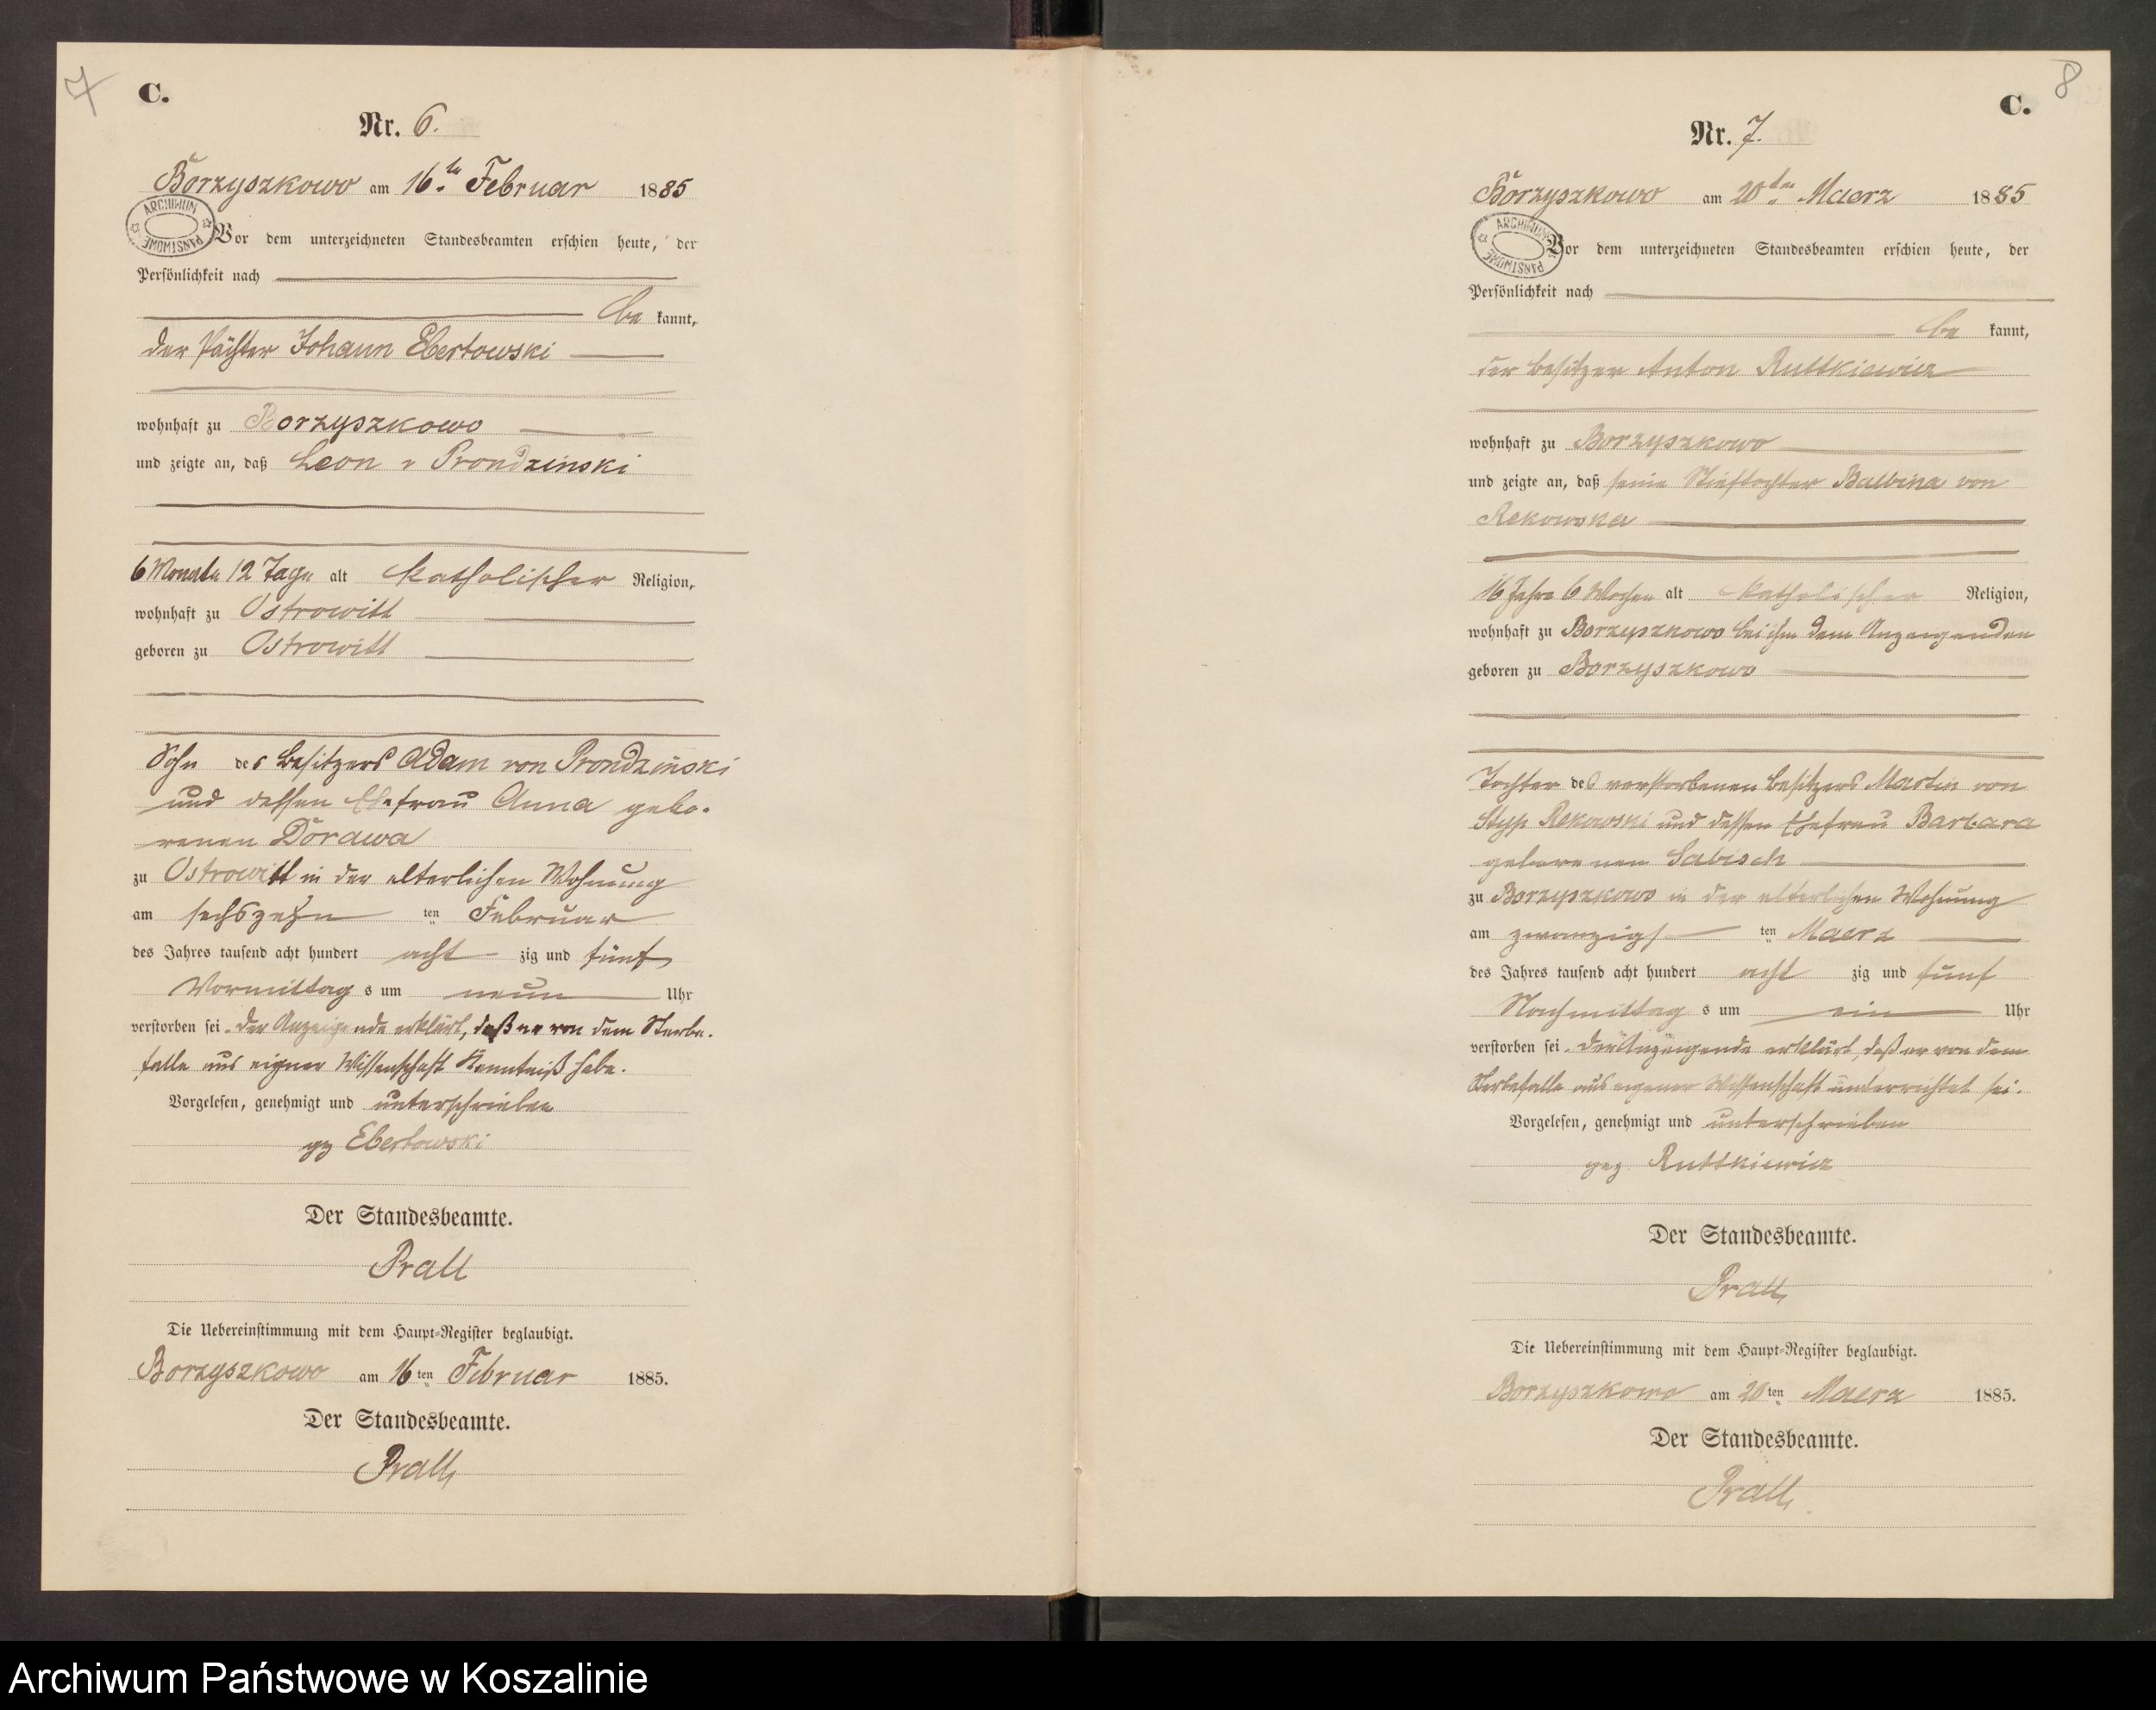 7
C.
Nr. 6.
Borzyszkowo am 16ten Februar 1885
ARCHIWUM PAŃSTWOWE
Vor dem unterzeichneten Standesbeamten erschien heute, der
Persönlichkeit nach
be kannt,
der Pächter Johann Ebertowski
wohnhaft zu Borzyszkowo
und zeigte an, daß Leon v Prondzinski
6 Monate 12 Tage alt katholischer Religion,
wohnhaft zu Ostrowitt
geboren zu Ostrowitt
Sohn des Besitzers Adam von Prondzinski
und dessen Ehefrau Anna gebo-
renen Dorawa
zu Ostrowitt in der elterlichen Wohnung
am sechszehn ten Februar
des Jahres tausend acht hundert acht zig und fünf
Vormittag s um neun Uhr
verstorben sei. Der Anzeigende erklärt, daß er von dem Sterbe-
falle aus eigner Wissenschaft Kenntniß habe.
Vorgelesen, genehmigt und unterschrieben
gz Ebertowski
Der Standesbeamte.
Prall
Die Uebereinstimmung mit dem Haupt-Register beglaubigt.
Borzyszkowo am 16ten Februar 1885.
Der Standesbeamte.
Prall
8
C.
Nr. 7.
Borzyszkowo am 20ten Maerz 1885
ARCHIWUM PAŃSTWOWE
Vor dem unterzeichneten Standesbeamten erschien heute, der
Persönlichkeit nach
be kannt,
der Besitzer Anton Ruttkiewicz
wohnhaft zu Borzyszkowo
und zeigte an, daß seine Stieftochter Balbina von
Rekowska
16 Jahre 6 Wochen alt katholischer Religion,
wohnhaft zu Borzyszkowo bei ihm dem Anzeigenden
geboren zu Borzyszkowo
Tochter des verstorbenen Besitzers Martin von
Styp Rekowski und dessen Ehefrau Barbara
geborenen Sabisch
zu Borzyszkowo in der elterlichen Wohnung
am zwanzigs ten Maerz
des Jahres tausend acht hundert acht zig und fünf
Nachmittag s um ein Uhr
verstorben sei. Der Anzeigende erklärt, daß er von dem
Sterbefalle aus eigener Wissenschaft unterrichtet sei.
Vorgelesen, genehmigt und unterschrieben
gez Ruttkiewicz
Der Standesbeamte.
Prall
Die Uebereinstimmung mit dem Haupt-Register beglaubigt.
Borzyszkowo am 20ten Maerz 1885.
Der Standesbeamte.
Prall
Archiwum Państwowe w Koszalinie